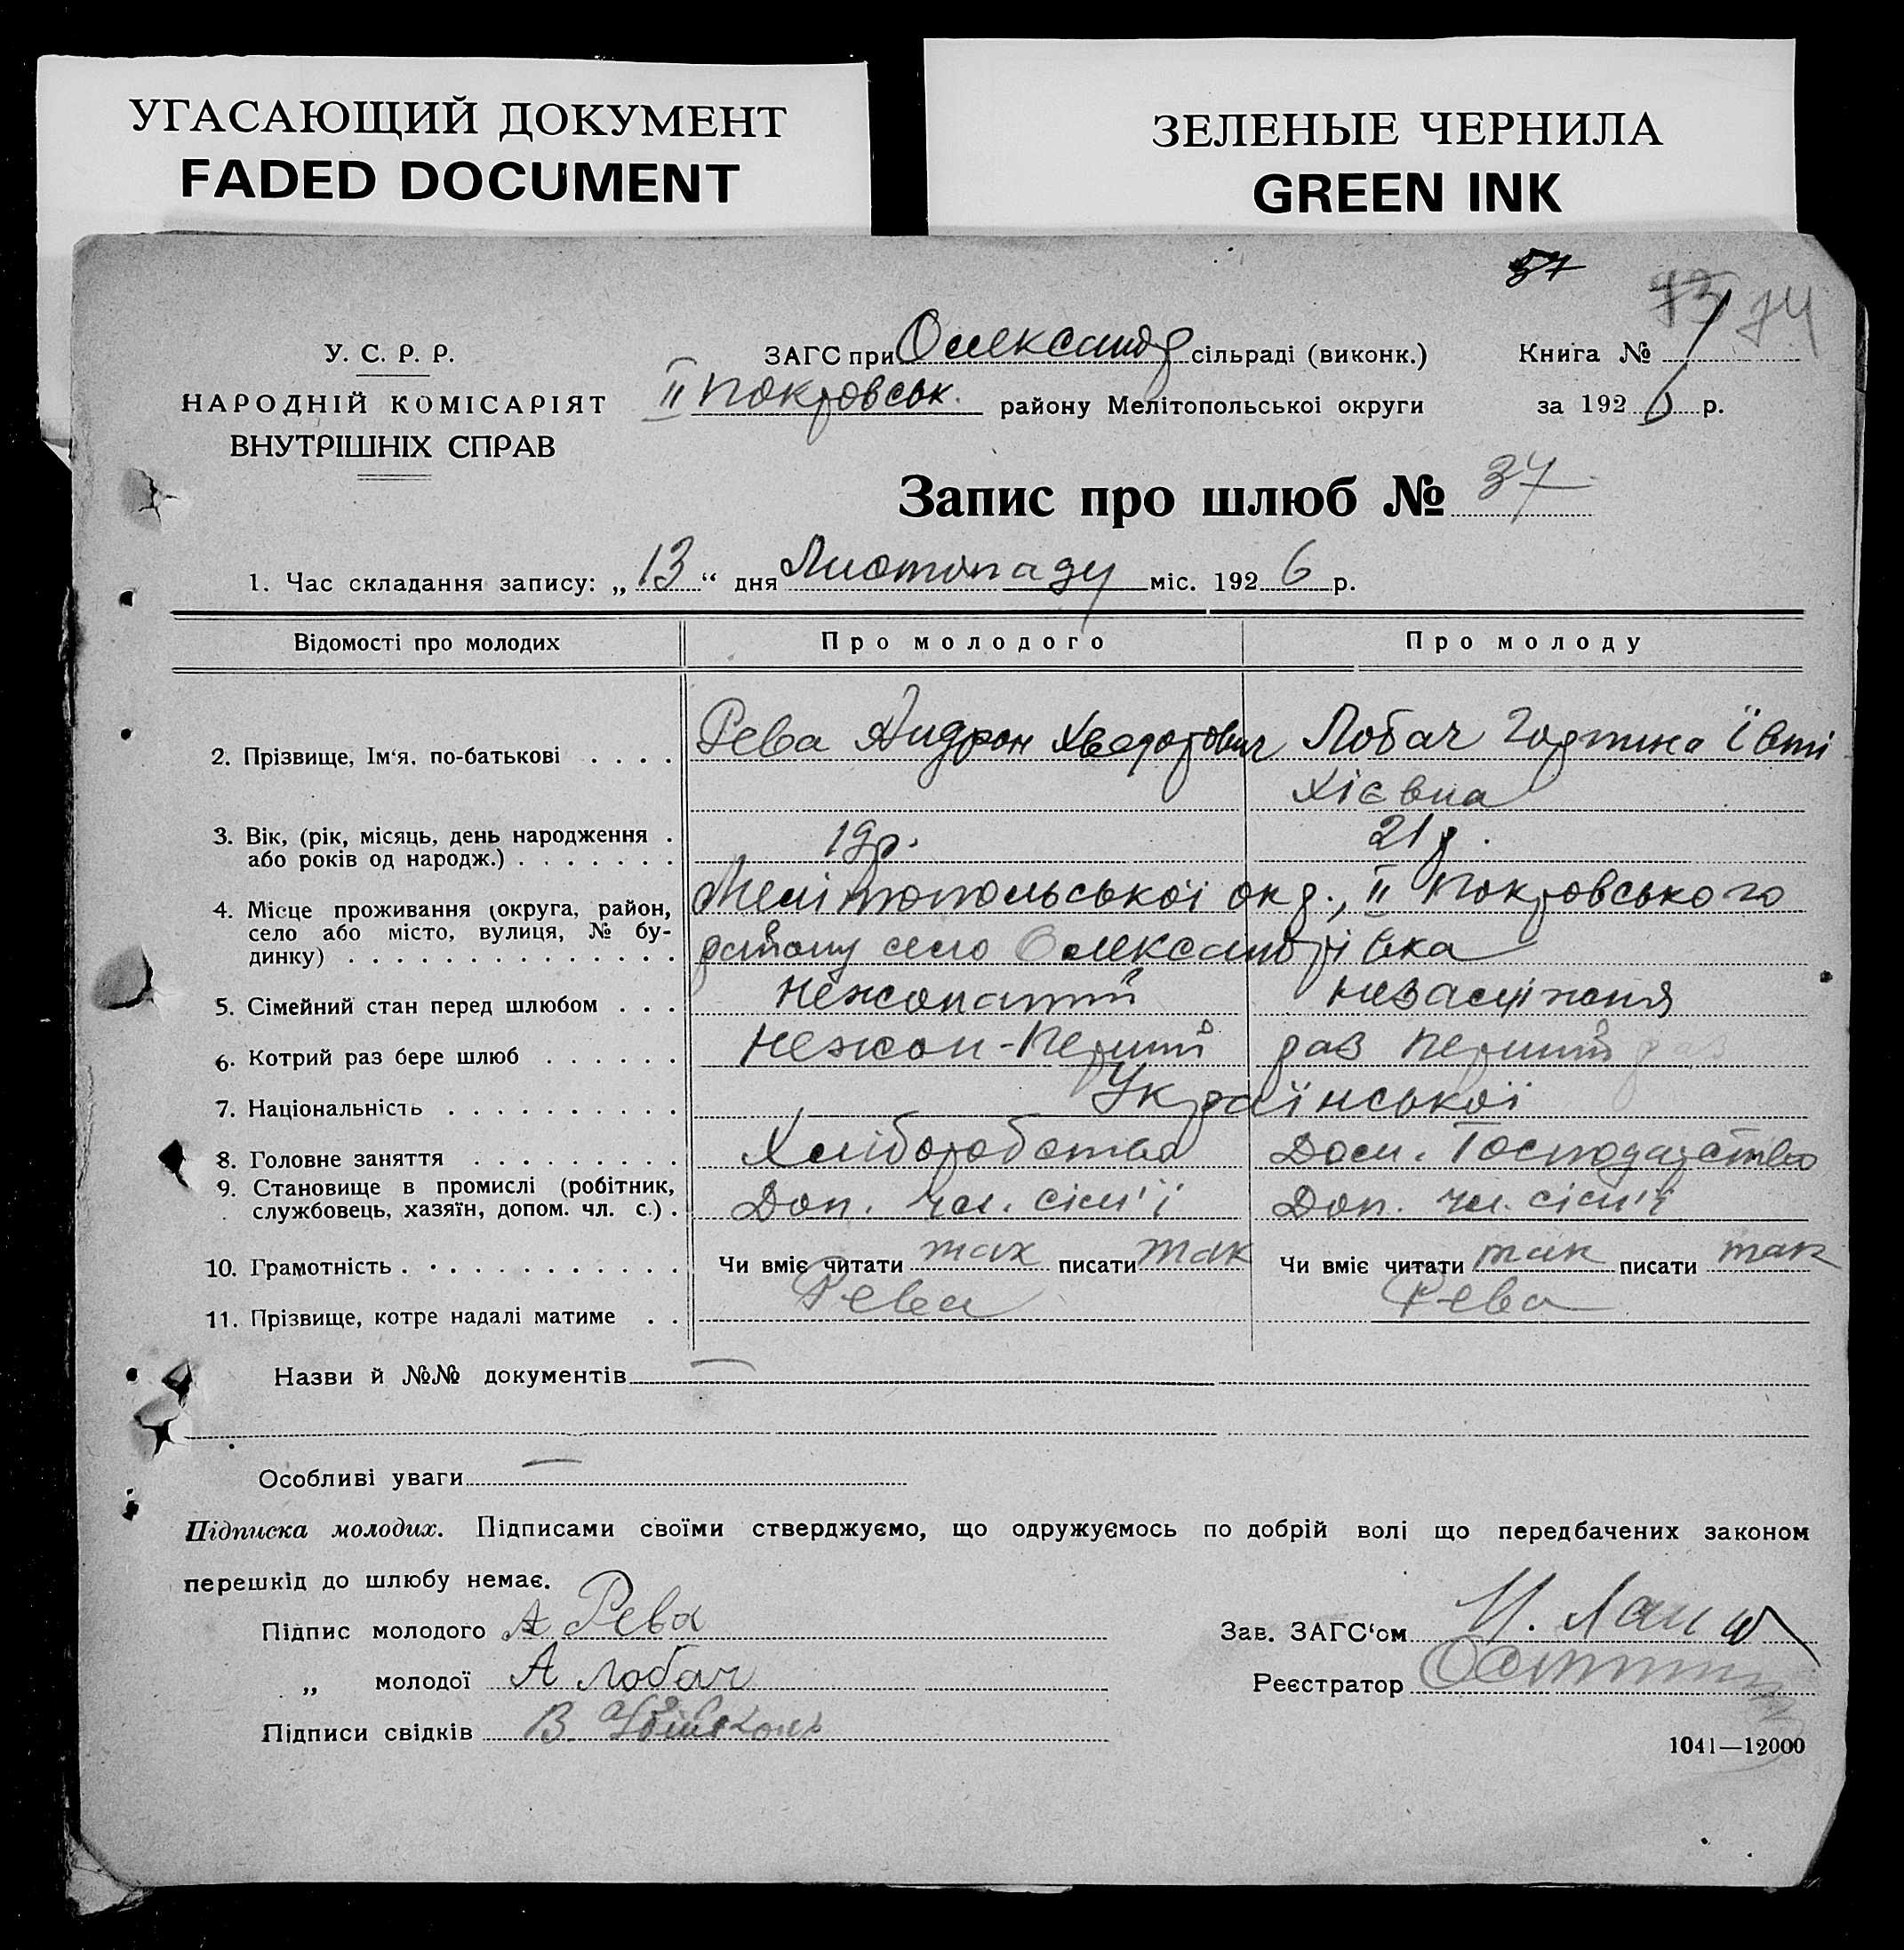 УГАСАЮЩИЙ ДОКУМЕНТ
FADED DOCUMENT
ЗЕЛЕНЫЕ ЧЕРНИЛА
GREEN INK
37
73 74
У. С. Р. Р.
НАРОДНІЙ КОМІСАРІЯТ
ВНУТРІШНІХ СПРАВ
ЗАГС при Олександр сільраді (виконк.)
II Покровськ. району Мелітопольськоі округи
Книга № 1
за 1926 р.
Запис про шлюб № 37
1. Час складання запису: „13“ дня Листопаду міс. 1926 р.
Відомості про молодих Про молодого Про молоду
2. Прізвище, Ім‘я, по-батькові . . . . Рева Андрон Хведорович Лобач Євті
хієвна
3. Вік, (рік, місяць, день народження . або років од народж.) . . . . . . . 19 р. 21 р.
4. Місце проживання (округа, район, Мелітопольської окр., II Покровського
село або місто, вулиця, № бу- району село Олександрівка
динку) . . . . . . . . . . . . . .
5. Сімейний стан перед шлюбом . . . Нежонатий незаміжня
6. Котрий раз бере шлюб . . . . . . Нежон-Перший раз перший раз
7. Національність . . . . . . . . . . Української
8. Головне заняття . . . . . . . . . Хліборобство Дом. Господарство
9. Становище в промислі (робітник,
службовець, хазяїн, допом. чл. с.) . Доп. чл. сім'ї Доп. чл. сім'ї
10. Грамотність . . . . . . . . . . . . Чи вміє читати так писати так Чи вміє читати так писати так
11. Прізвище, котре надалі матиме . . Рева Рева
Назви й №№ документів —
Особливі уваги —
Підписка молодих. Підписами своїми стверджуємо, що одружуємось по добрій волі що передбачених законом
перешкід до шлюбу немає.
Підпис молодого А Рева
„ молодої А Лобач
Підписи свідків В.
Зав. ЗАГС‘ом
Реєстратор
1041—12000